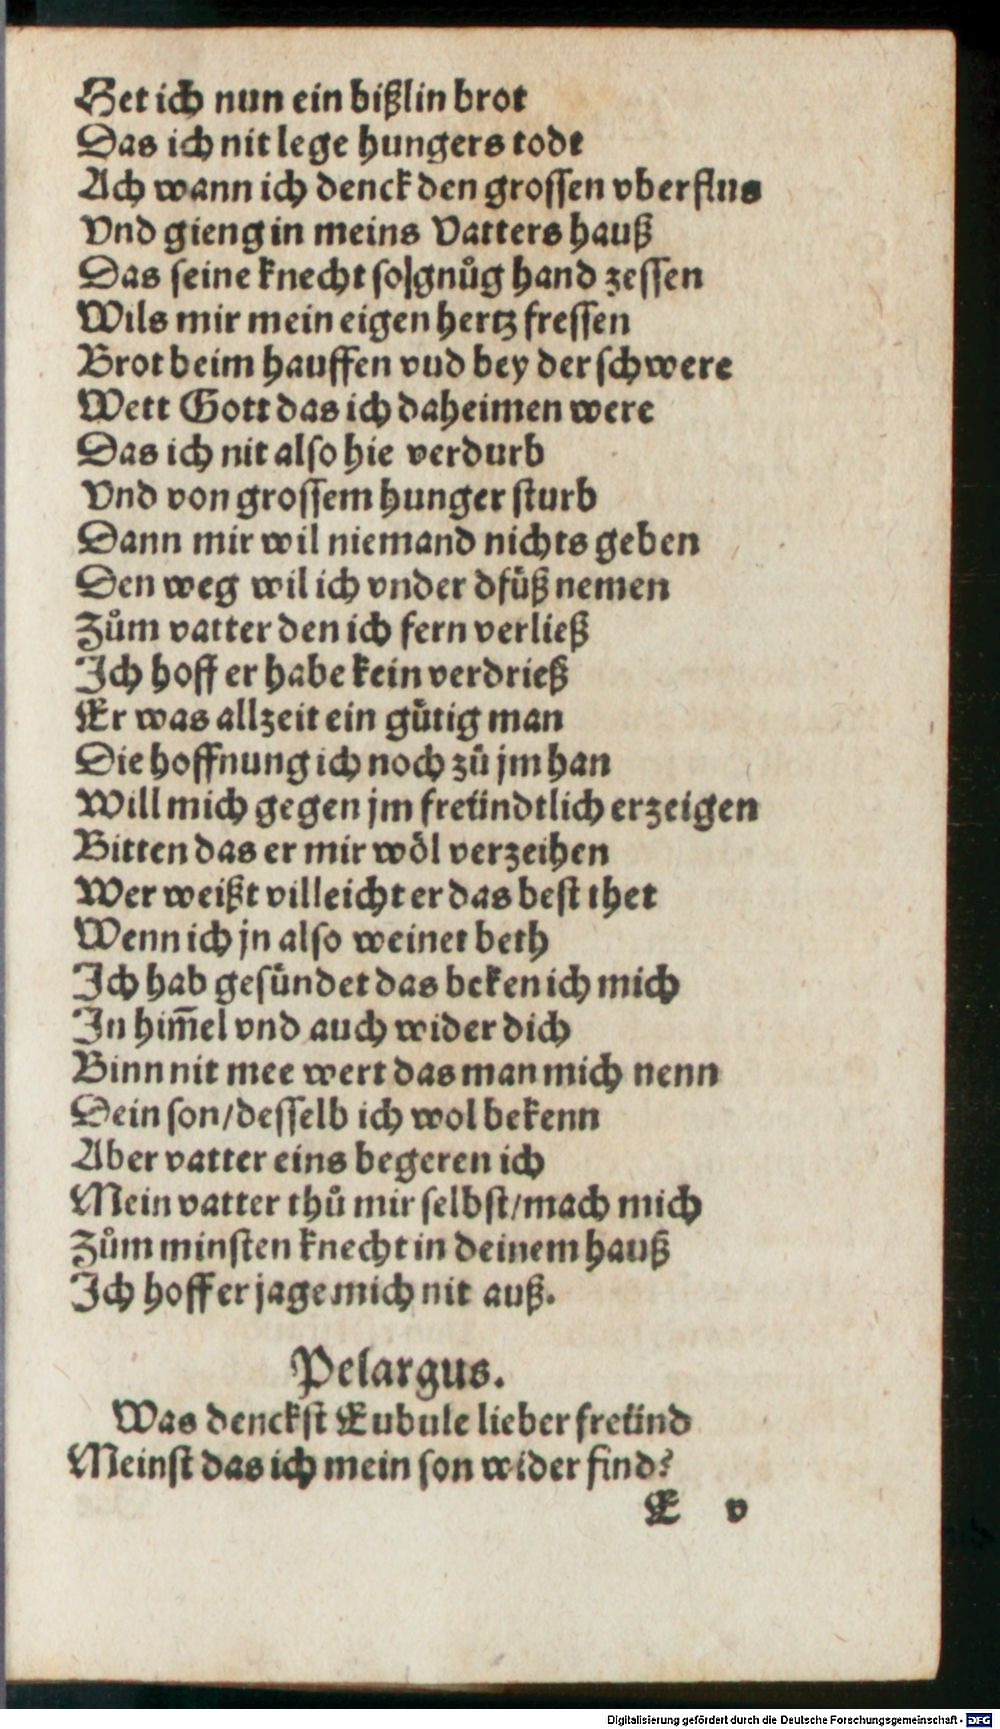 Het ich nun ein bißlin brot
Das ich nit lege hungers todt
Ach wann ich denck den grossen vberflus
Vnd gieng in meins Vatters hauß
Das seine knecht so gnůg hand zessen
Wils mir mein eigen hertz fressen
Brot beim hauffen vud bey der schwere
Wett Gott das ich daheimen were
Das ich nit also hie verdurb
Vnd von grossem hunger sturb
Dann mir wil niemand nichts geben
Den weg wil ich vnder dfüß nemen
Zům vatter den ich fern verließ
Ich hoff er habe kein verdrieß
Er was allzeit ein gütig man
Die hoffnung ich noch zů jm han
Will mich gegen jm freündtlich erzeigen
Bitten das er mir wöl verzeihen
Wer weißt villeicht er das best thet
Wenn ich jn also weinet beth
Ich hab gesündet das beken ich mich
In him̃el vnd auch wider dich
Binn nit mee wert das man mich nenn
Dein son/desselb ich wol bekenn
Aber vatter eins begeren ich
Mein vatter thů mir selbst/mach mich
Zům minsten knecht in deinem hauß
Ich hoff er jage mich nit auß.
Pelargus.
Was denckst Eubule lieber freünd
Meinst das ich mein son wider find?
E v
Digitalisierung gefördert durch die Deutsche Forschungsgemeinschaft - DFG